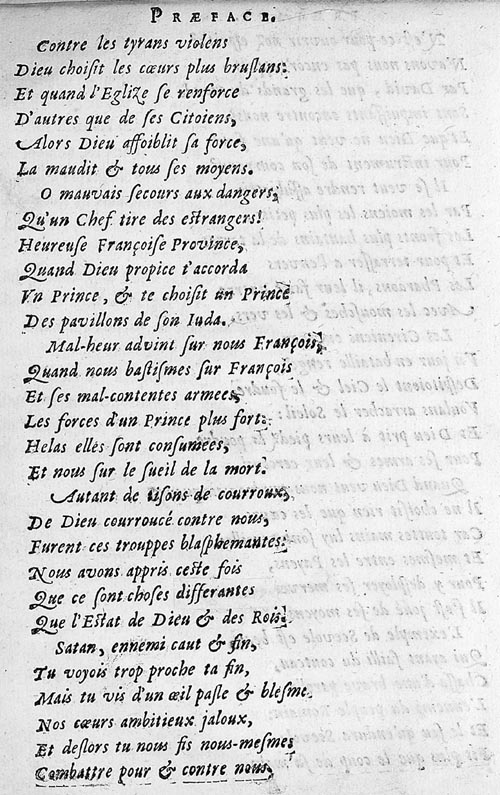 PRÆFACE.
Contre les tyrans violens
Dieu choiſit les cœurs plus bruſlans:
Et quand l'Egliʒe ſe renforce
D'autres que de ſes Citoiens,
Alors Dieu affoiblit ſa force,
La maudit & tous ſes moyens.
O mauvais ſecours aux dangers,
Qu'un Chef tire des eſtrangers!
Heureuſe Françoiſe Province,
Quand Dieu propice t'accorda
Vn Prince, & te choiſit un Prince
Des pavillons de ſon Iuda.
Mal-heur advint ſur nous François,
Quand nous baſtiſmes ſur François
Et ſes mal-contentes armees,
Les forces d'un Prince plus fort:
Helas elles ſont conſumees,
Et nous ſur le ſueil de la mort.
Autant de tiſons de courroux,
De Dieu courroucé contre nous,
Furent ces trouppes blaſphemantes:
Nous avons appris ceſte fois
Que ce ſont choſes differantes
Que l'Eſtat de Dieu & des Rois.
Satan, ennemi caut & fin,
Tu voyois trop proche ta fin,
Mais tu vis d'un œil paſle & bleſme
Nos cœurs ambitieux jaloux,
Et deſlors tu nous fis nous-meſmes
Combattre pour & contre nous.